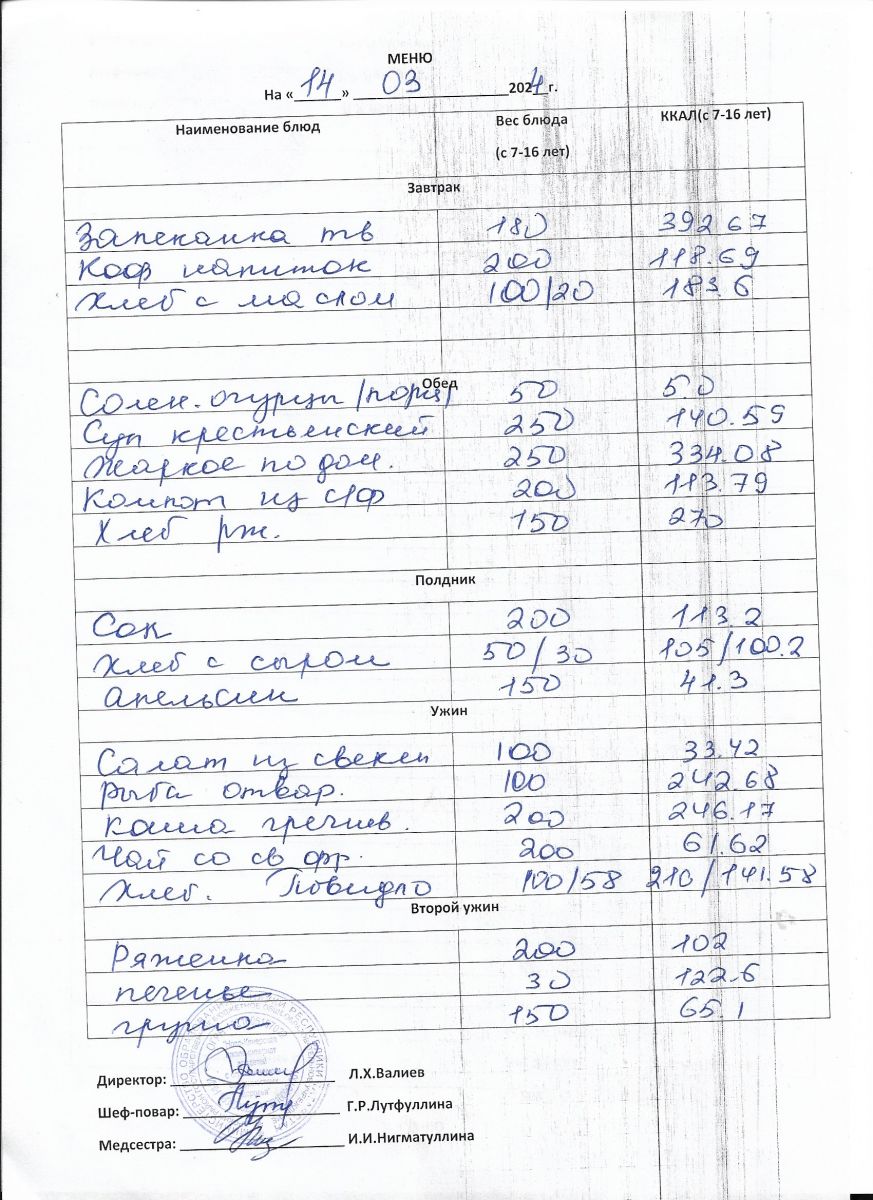 МЕНЮ
На «14» 03 2024 г.
Наименование блюд Вес блюда (с 7-16 лет) ККАЛ(с 7-16 лет)
Завтрак
Запеканка тв 180 392 67
Коф напиток 200 118.69
Хлеб с маслом 100/20 183.6
Обед
Солен. огурцы /порц/ 50 5.0
Суп крестьянский 250 140.59
Жаркое по дом. 250 334.08
Компот из с/ф 200 113.79
Хлеб рж. 150 270
Полдник
Сок 200 113.2
Хлеб с сыром 50/30 105/100.2
Апельсин 150 41.3
Ужин
Салат из свеклы 100 33.42
Рыба отвар. 100 242.68
Каша гречнев. 200 246.17
Чай со св фр. 200 61.62
Хлеб. Повидло 100/58 210/141.58
Второй ужин
Ряженка 200 102
печенье 30 122.6
груша 150 65.1
Директор: Л.Х.Валиев
Шеф-повар: Г.Р.Лутфуллина
Медсестра: И.И.Нигматуллина